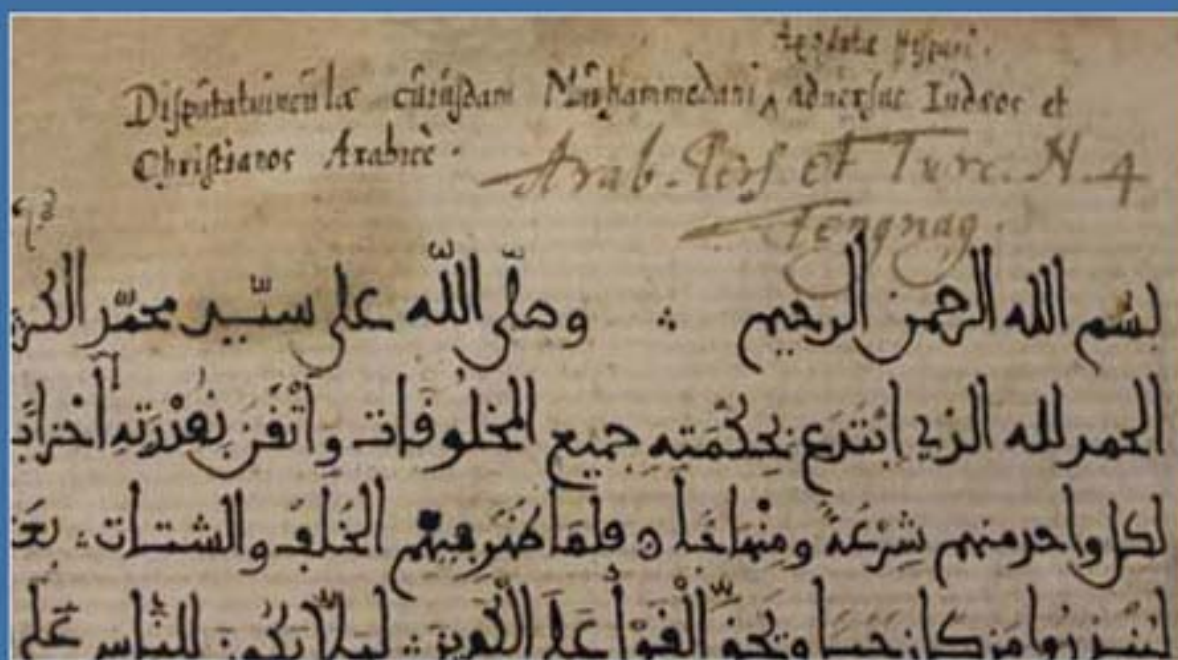 Apostatæ Hispani.
Disputatiunculæ cuiusdam Muhammedani ‸ adversus Iudæos et
Christianos Arabicè.
Arab. Pers et Turc. N. 4
Tengnag.
بسم الله الرحمن الرحيم ∴ وصلّى اللّه على سيّد محمّد الكر
الحمد لله الذي ابتدع بحكمته جميع المخلوفات وأتفن بفدرته أحزا
لكل واحد منهم شرعة ومنهاجا ٥ فلما ظهر فيهم الخلف والشتات ∴ بعَ
من كان حيا ويحق الفول على الكفرين ∴ ليلا يكون للناس على